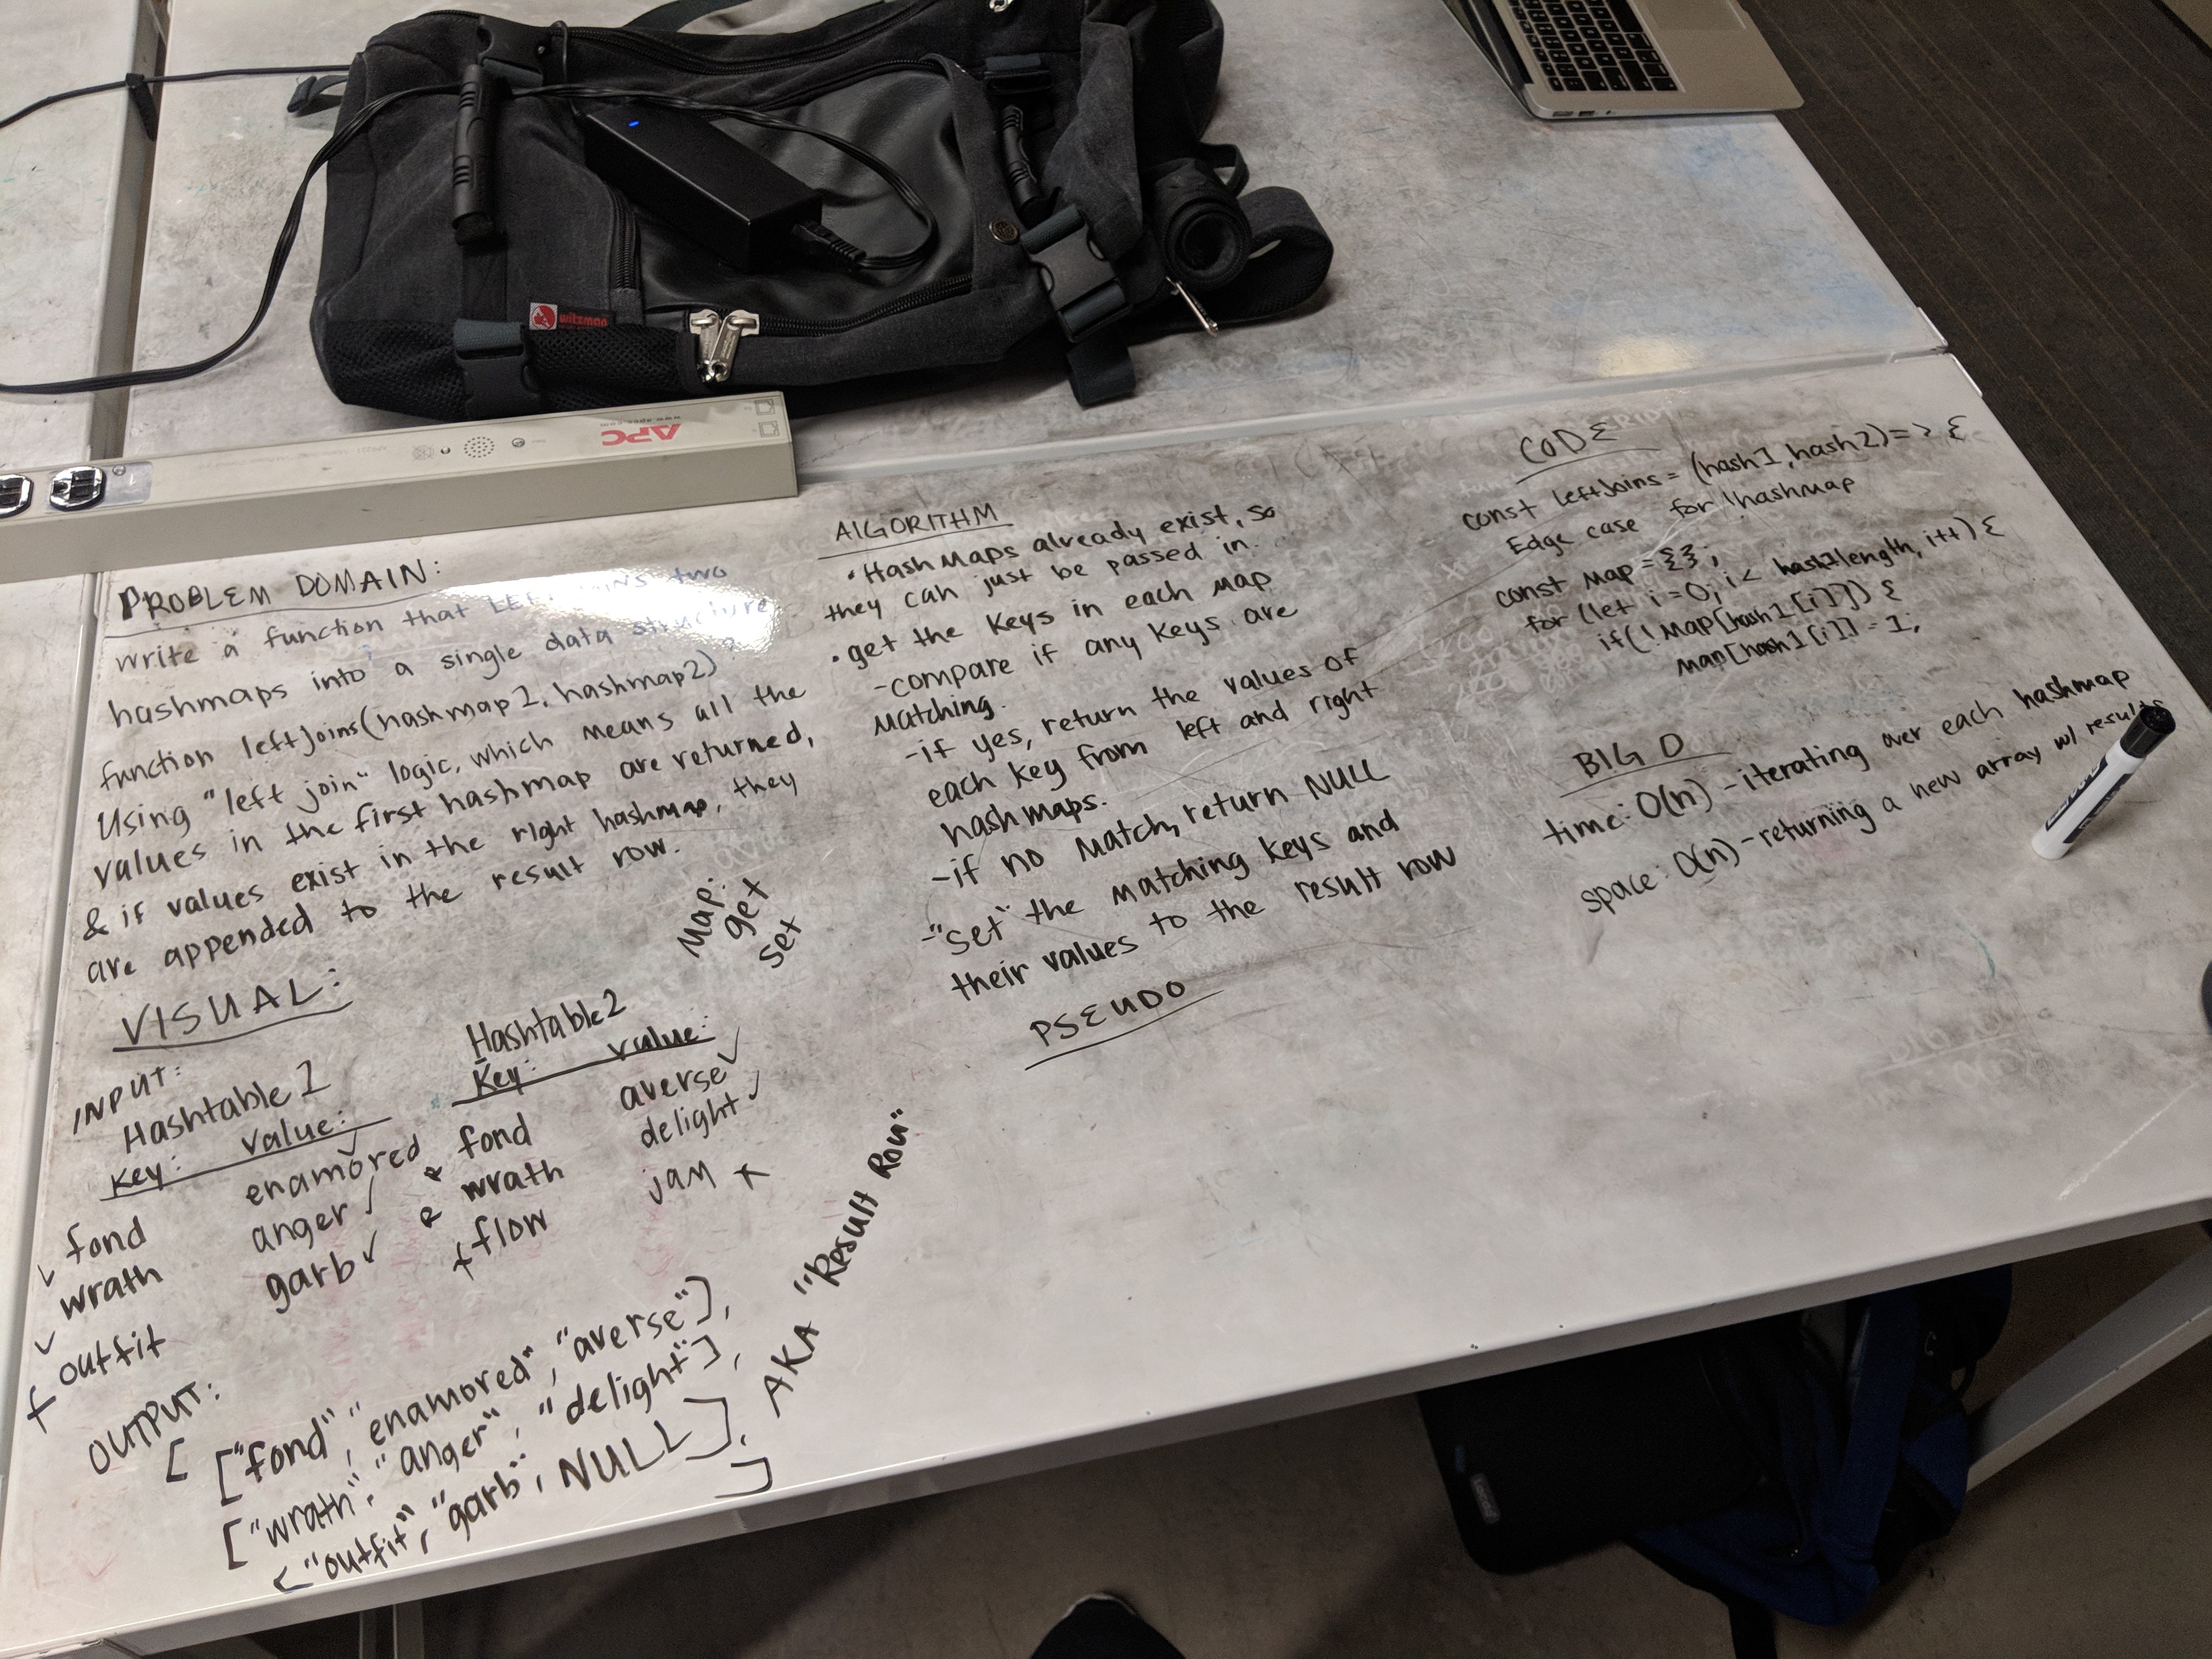 witzman
APC
www.apcc.com
PROBLEM DOMAIN:
write a function that LEFT JOINS two
hashmaps into a single data structure
function leftJoins(hashmap1, hashmap2)
Using "left join" logic, which means all the
values in the first hashmap are returned,
& if values exist in the right hashmap, they
are appended to the result row.
Map:
get
set
VISUAL:
INPUT:
Hashtable 1
Key: value:
fond enamored
wrath anger
outfit garb
Hashtable2
Key: value:
fond averse
wrath delight
flow jam
OUTPUT:
[ ["fond", "enamored", "averse"],
["wrath", "anger", "delight"],
["outfit", "garb", NULL],
]
AKA "Result Row"
ALGORITHM
• Hash Maps already exist, so
they can just be passed in.
• get the keys in each map
-compare if any keys are
matching.
-if yes, return the values of
each key from left and right
hashmaps.
-if no match, return NULL
-"set" the matching keys and
their values to the result row
PSEUDO
CODE
const leftJoins = (hash1, hash2) => {
Edge case for !hashmap
const map = {};
for (let i=0; i < hash1length, i++) {
if(!map[hash1[i]]) {
map[hash1[i]] = 1;
BIG O
time: O(n) - iterating over each hashmap
space: O(n) - returning a new array w/ results